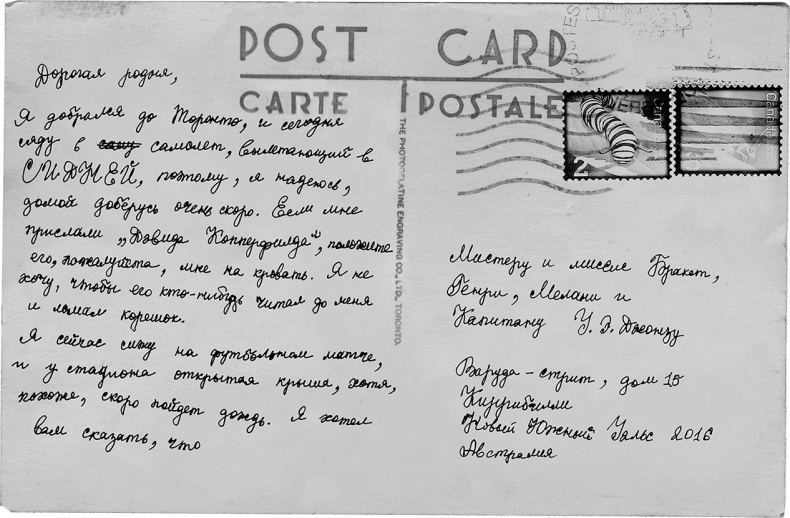 POST CARD
CARTE POSTALE
THE PHOTOGELATINE ENGRAVING CO., LTD., TORONTO.
Дорогая родня,
Я добрался до Торонто, и сегодня
сяду в самолет, вылетающий в
СИДНЕЙ, поэтому, я надеюсь,
домой доберусь очень скоро. Если мне
прислали „Дэвида Копперфилда", положите
его, пожалуйста, мне на кровать. Я не
хочу, чтобы его кто-нибудь читал до меня
и ломал корешок.
Я сейчас сижу на футбольном матче,
и у стадиона открытая крыша, хотя,
похоже, скоро пойдет дождь. Я хотел
вам сказать, что
2
Canada
Мистеру и миссис Бракет,
Генри, Мелани и
Капитану У. Э. Джонзу
Варуда-стрит, дом 15
Кизурибилли
Новый Южный Уэльс 2016
Австралия